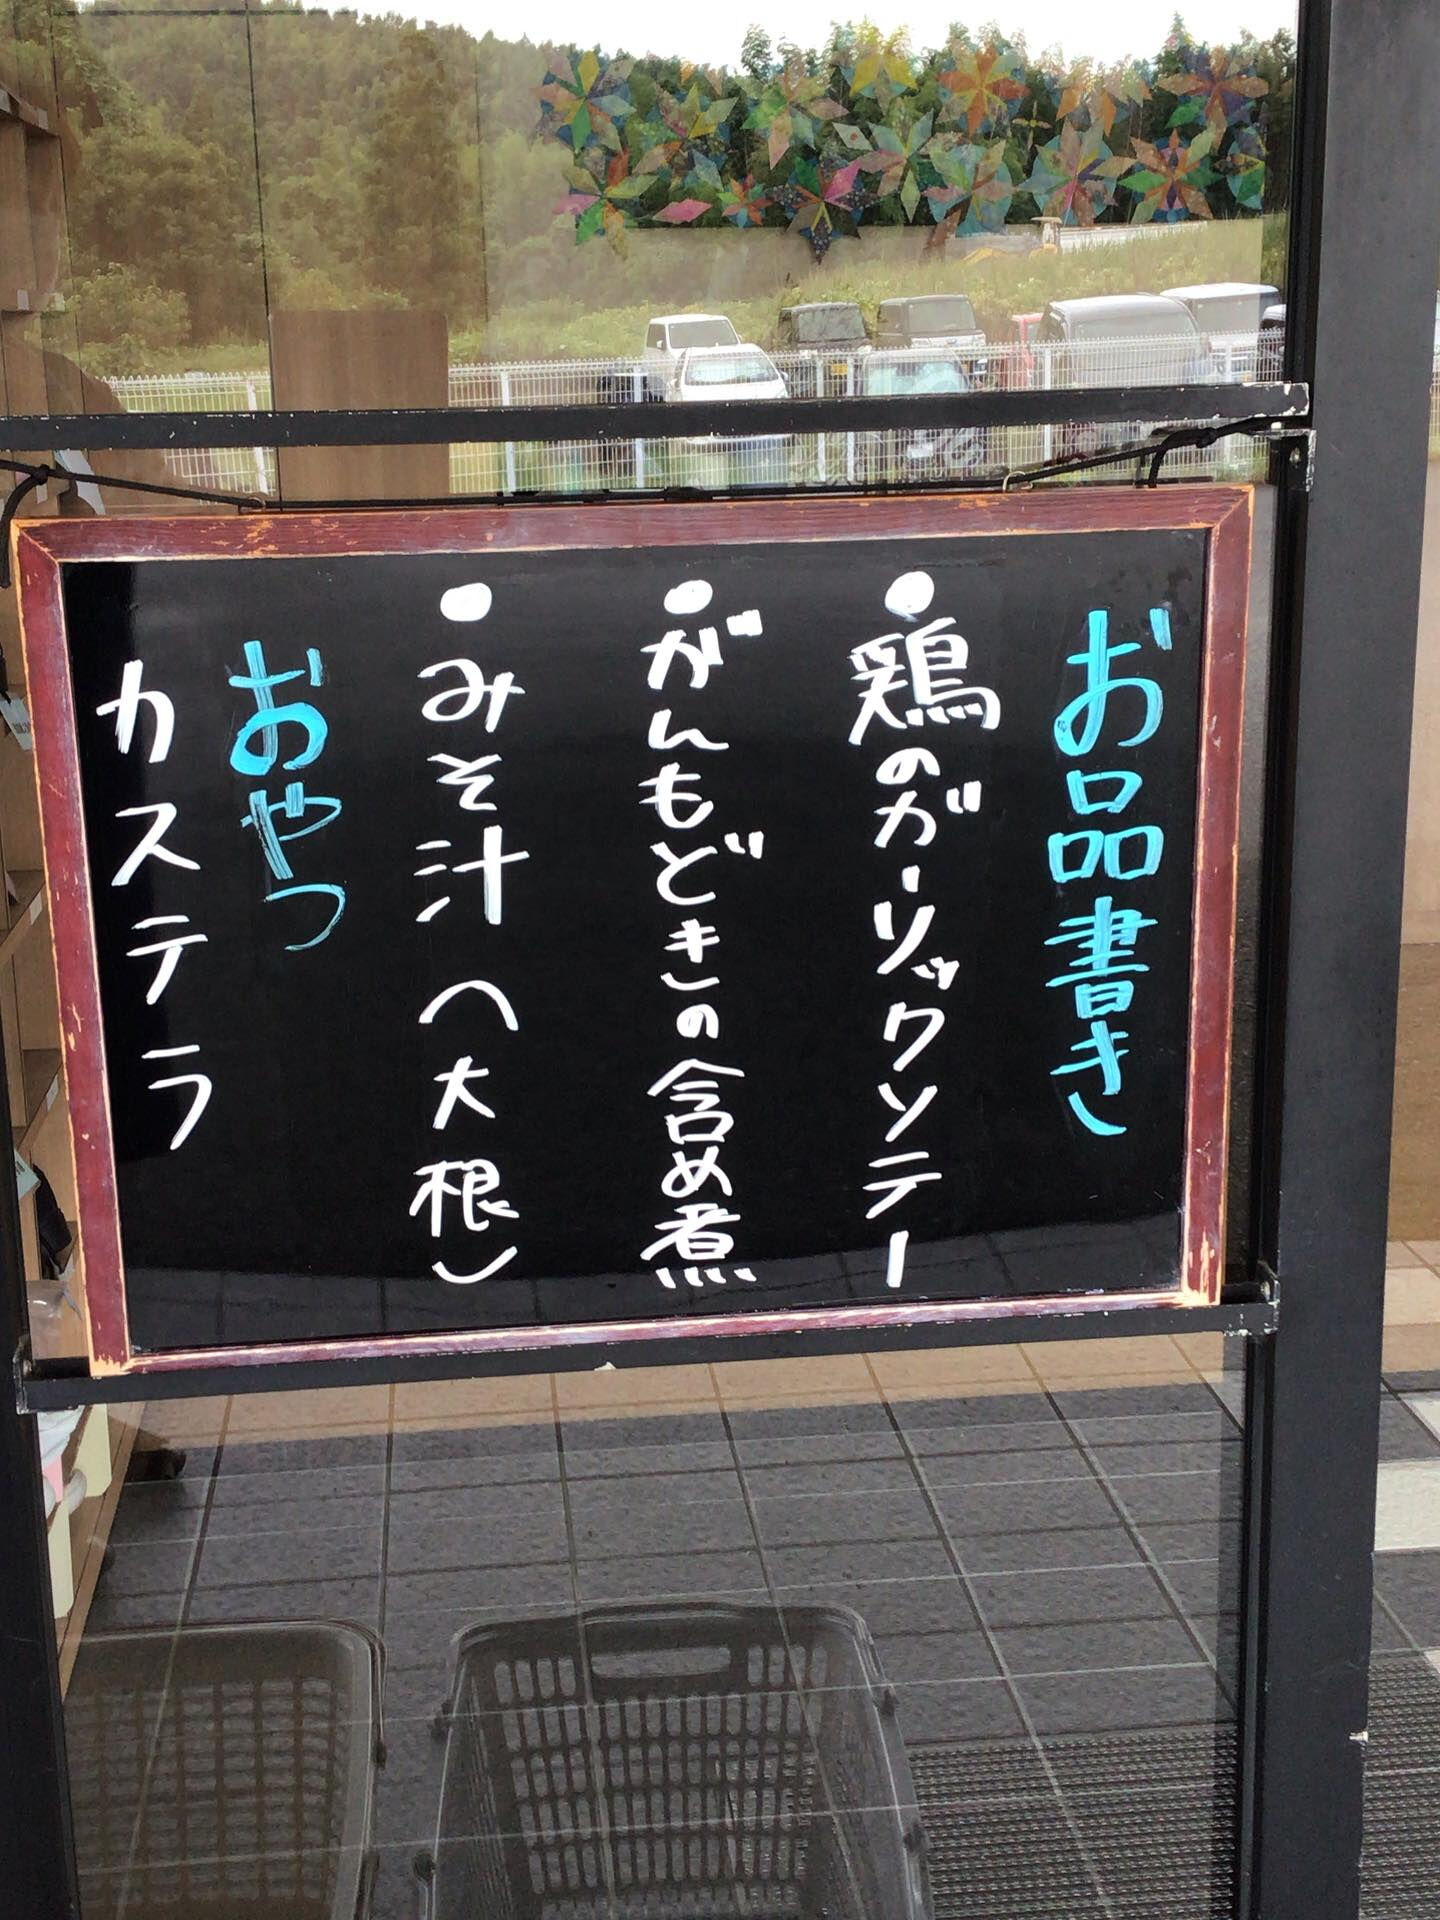 お品書き
●鶏のガーリックソテー
●がんもどきの含め煮
●みそ汁（大根）
おやつ
カステラ